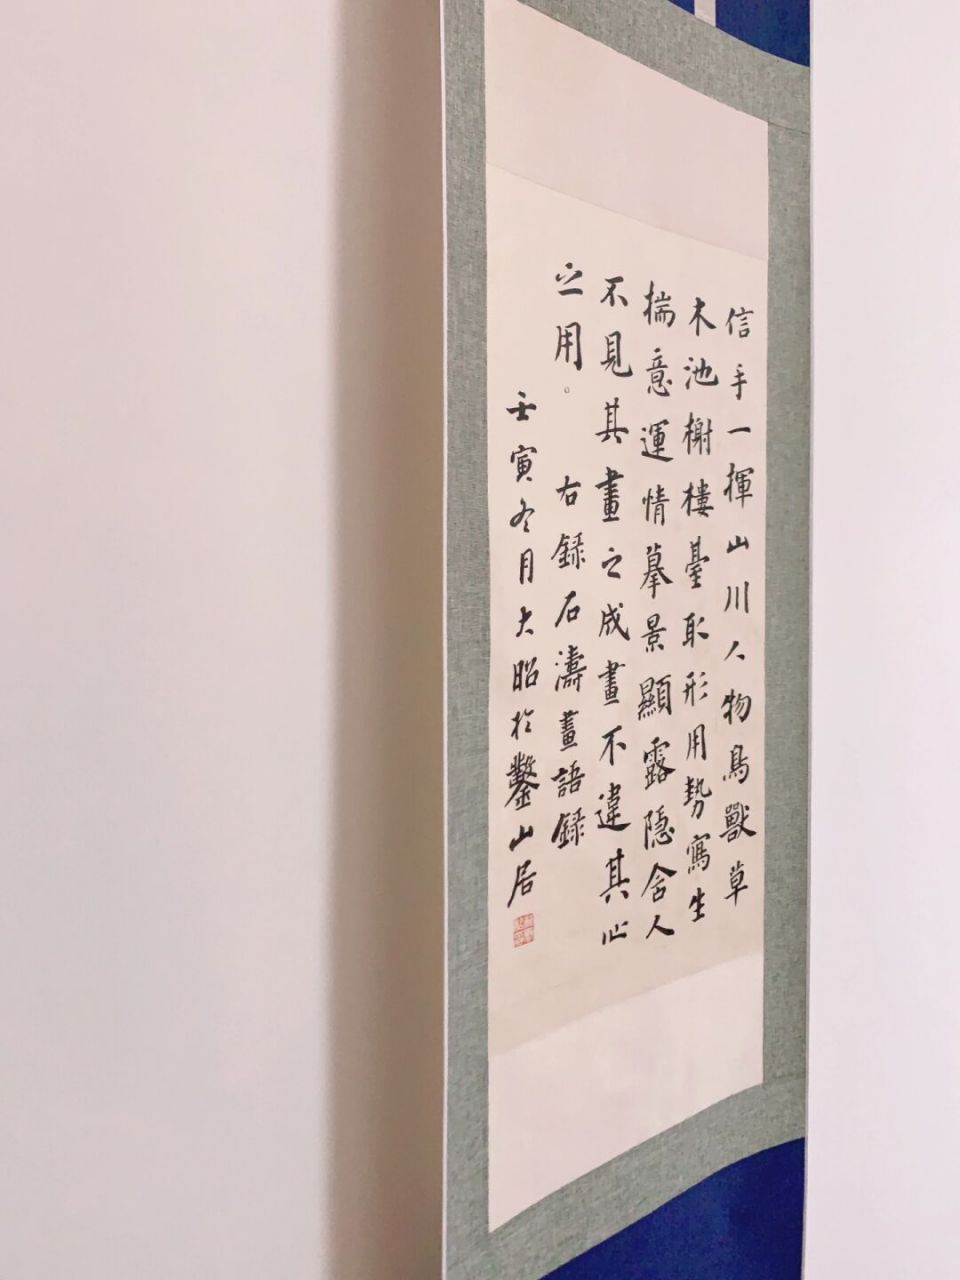 信手一揮山川人物鳥獸草
木池榭樓臺取形用勢寫生
揣意運情摹景顯露隱含人
不見其畫之成畫不違其心
之用。 右録石濤畫語録
壬寅冬月大昭於鑿山居